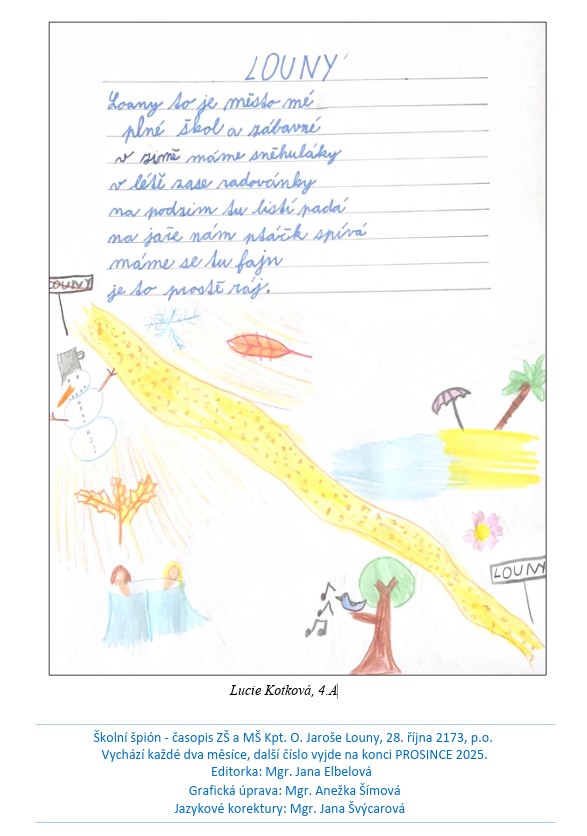 LOUNY
Louny to je město mé
plné škol a zábavné
v zimě máme sněhuláky
v létě zase radovánky
na podzim tu listí padá
na jaře nám ptáčk spívá
máme se tu fajn
je to prostě ráj.
LOUNY
LOUNY
Lucie Kotková, 4.A
Školní špión - časopis ZŠ a MŠ Kpt. O. Jaroše Louny, 28. října 2173, p.o.
Vychází každé dva měsíce, další číslo vyjde na konci PROSINCE 2025.
Editorka: Mgr. Jana Elbelová
Grafická úprava: Mgr. Anežka Šímová
Jazykové korektury: Mgr. Jana Švýcarová